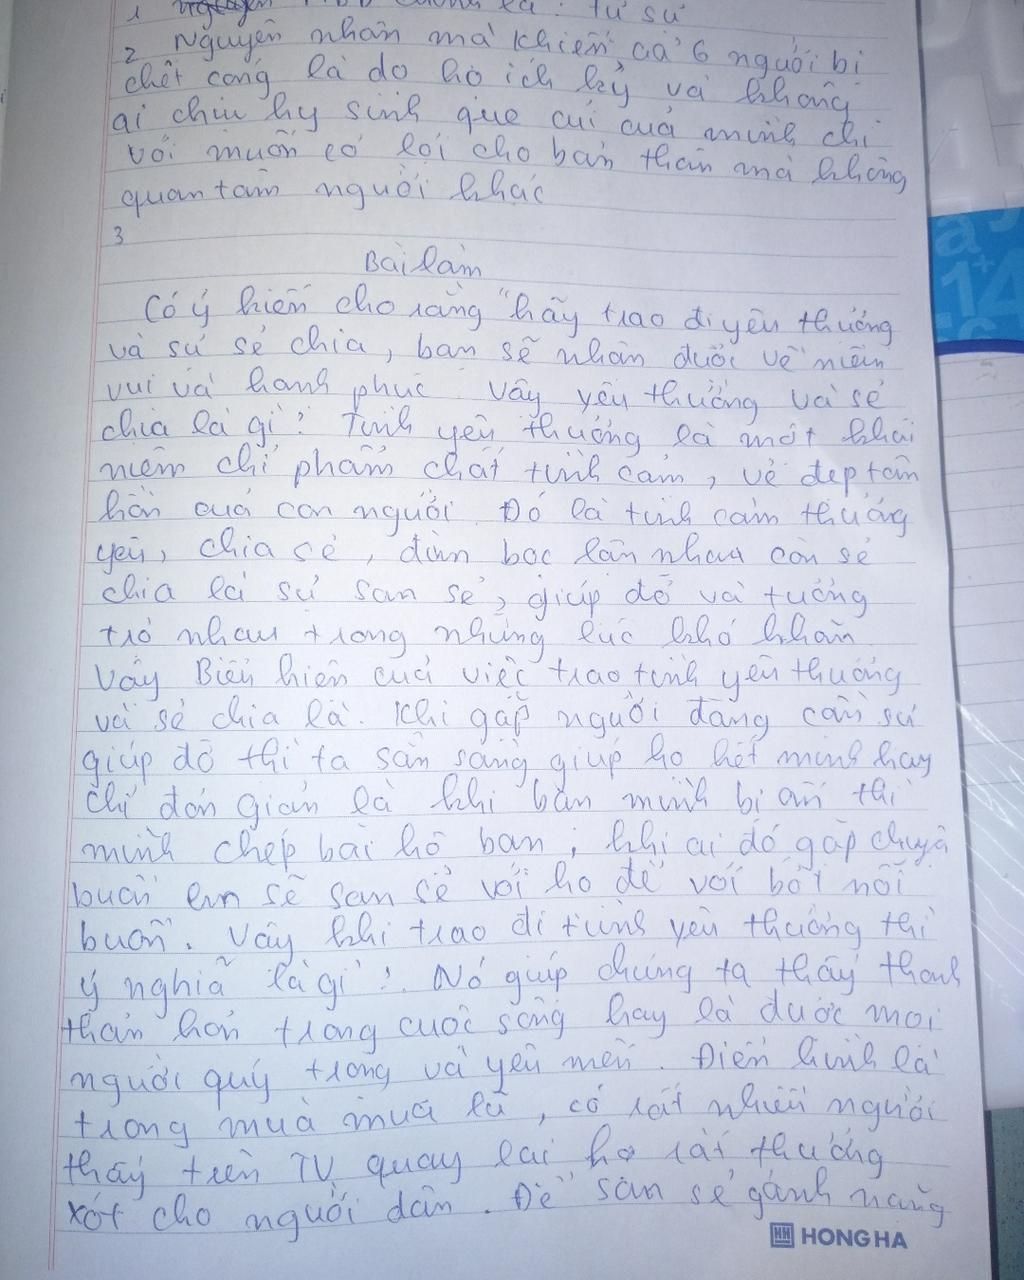 1 PTBĐ chính là : tự sự
2 Nguyên nhân mà khiến cả 6 người bị
chết cóng là do họ ích kỷ và không
ai chịu hy sinh que củi của mình chỉ
với muốn có lợi cho bản thân mà không
quan tâm người khác
3
Bài làm
Có ý kiến cho rằng "hãy trao đi yêu thương
và sự sẻ chia, bạn sẽ nhận được về niềm
vui và hạnh phúc Vậy yêu thương và sẻ
chia là gì? Tình yêu thương là một khái
niệm chỉ phẩm chất tình cảm, vẻ đẹp tâm
hồn của con người. Đó là tình cảm thương
yêu, chia sẻ, đùm bọc lẫn nhau còn sẻ
chia là sự san sẻ, giúp đỡ và tương
trợ nhau trong những lúc khó khăn
Vậy Biểu hiện của việc trao tình yêu thương
và sẻ chia là. Khi gặp người đang cần sự
giúp đỡ thì ta sẵn sàng giúp họ hết mình hay
chỉ đơn giản là khi bạn mình bị ốm thì
mình chép bài hộ bạn, khi ai đó gặp chuyện
buồn em sẽ san sẻ với họ để vơi bớt nỗi
buồn. Vậy khi trao đi tình yêu thương thì
ý nghĩa là gì?. Nó giúp chúng ta thấy thanh
thản hơn trong cuộc sống hay là được mọi
người quý trọng và yêu mến. Điển hình là
trong mùa mưa lũ, có rất nhiều người
thấy trên TV quay lại họ rất thương
xót cho người dân. Để san sẻ gánh nặng
HONG HA